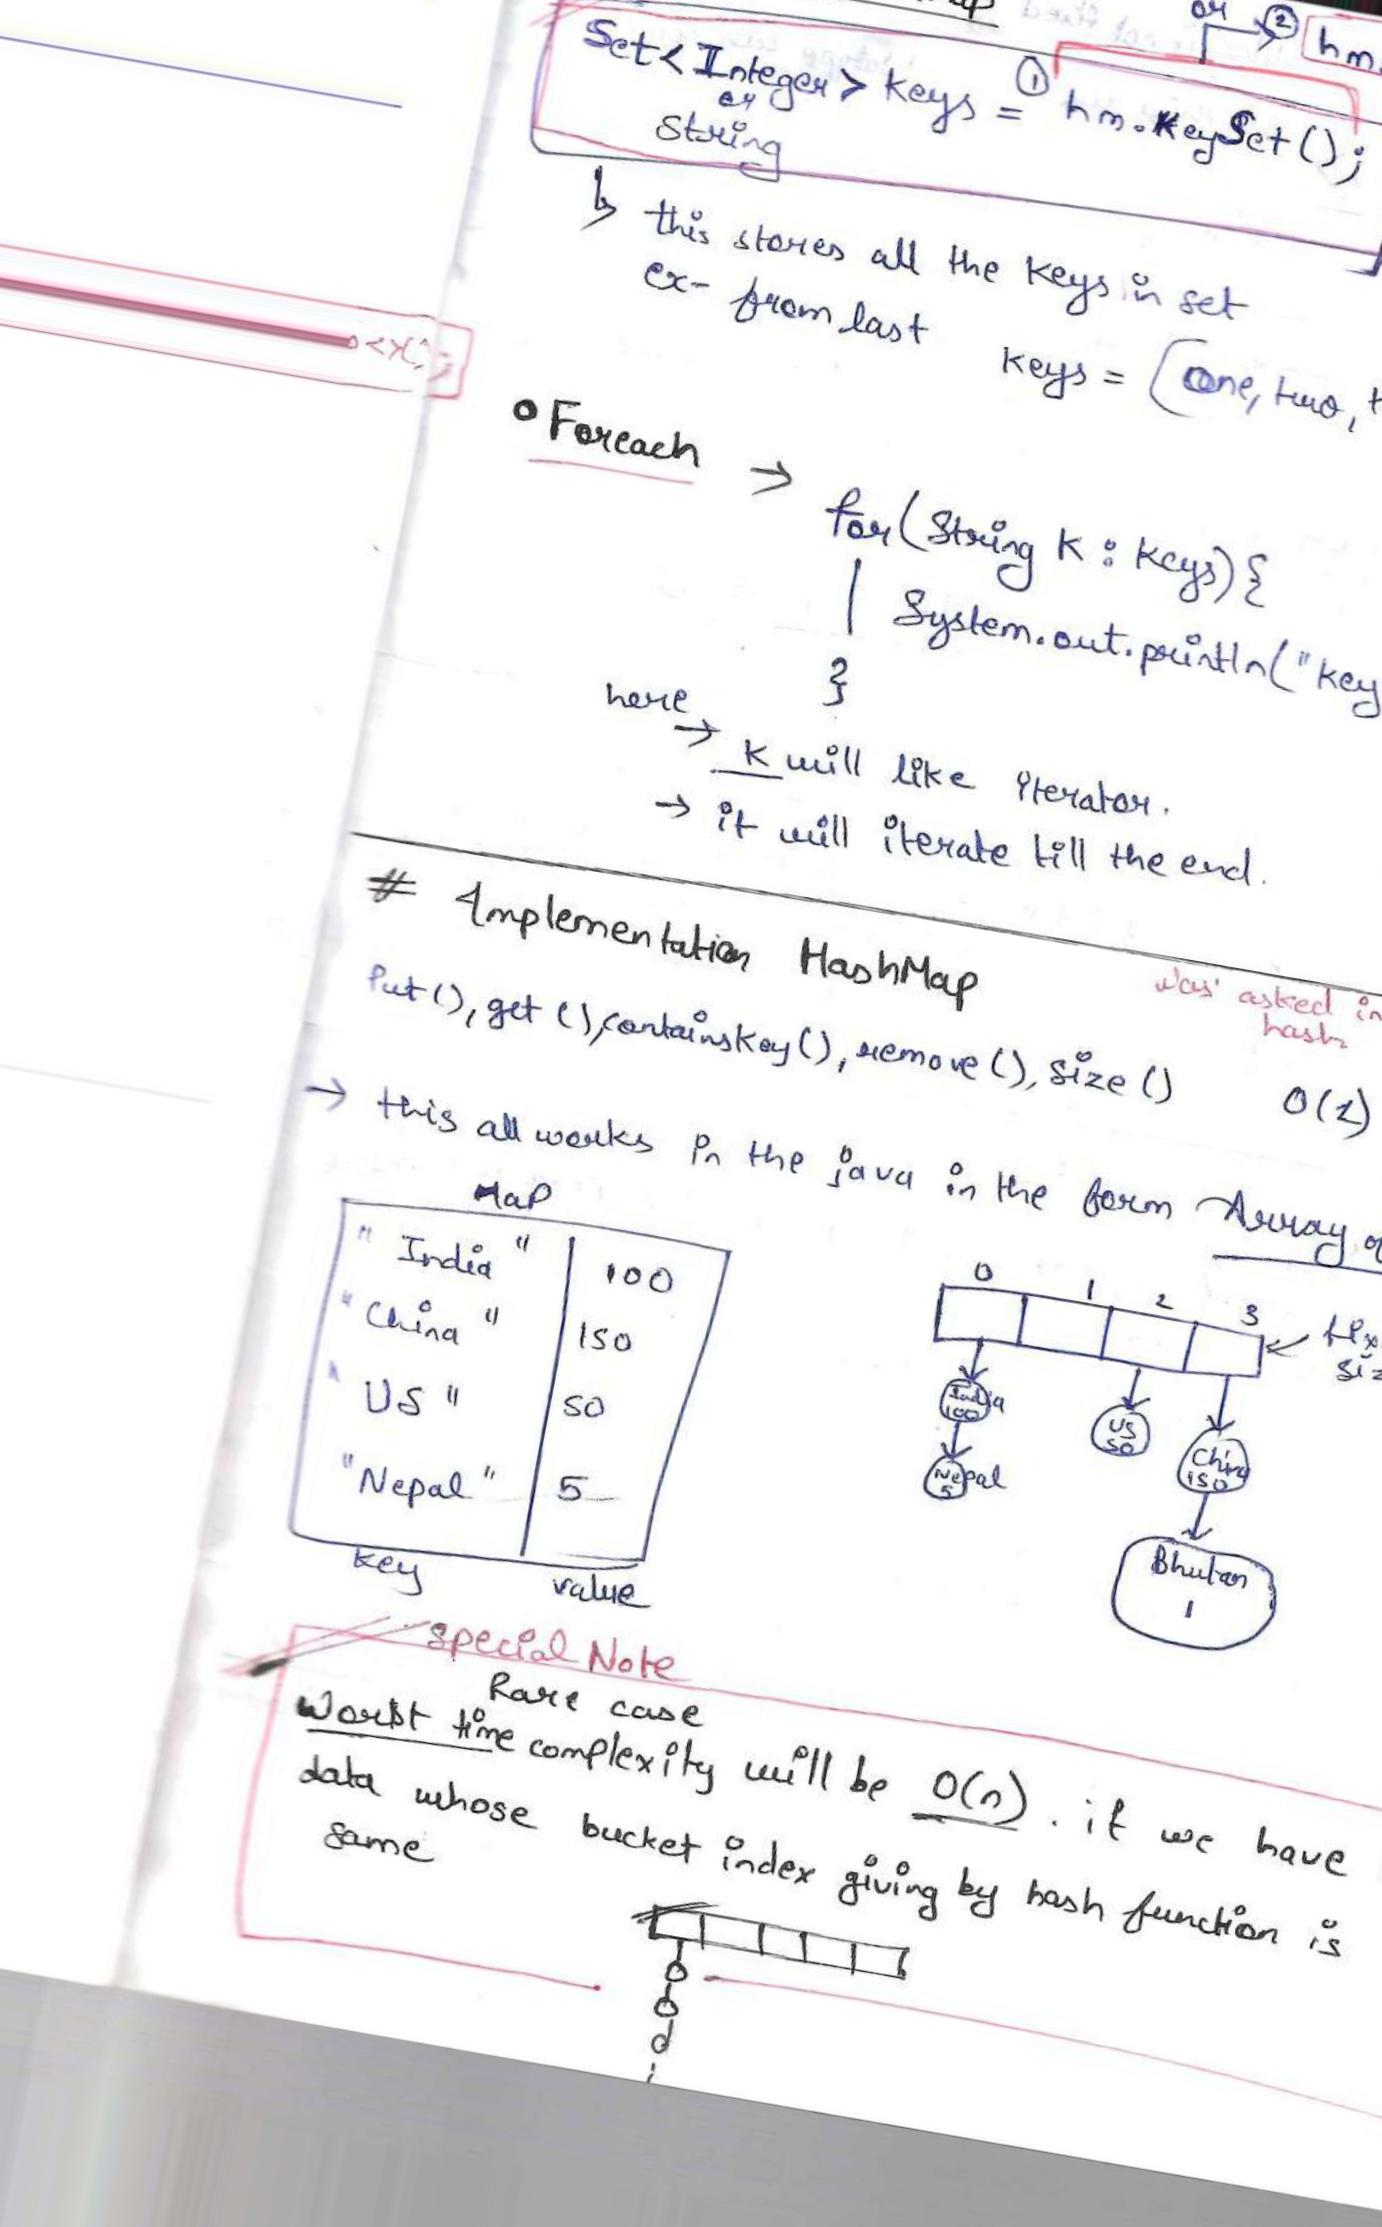 or → ② hm.
Set<Integer> keys = ① hm.keySet();
or
String
↳ this stores all the keys in set
ex- from last keys = (one, two, t
• Foreach → for(String K : keys){
System.out.println("key
}
here → K will like iterator.
→ it will iterate till the end.
# Implementation HashMap
was asked in
hash
Put(), get(), containsKey(), remove(), size() O(1)
→ this all works in the java in the form Array o
Map
"India" 100
"China" 150
"US" 50
"Nepal" 5
key value
0 1 2 3
India 100
Nepal 5
US 50
China 150
Bhutan 1
Special Note
Rare case
Worst time complexity will be O(n). if we have
data whose bucket index giving by hash function is
same